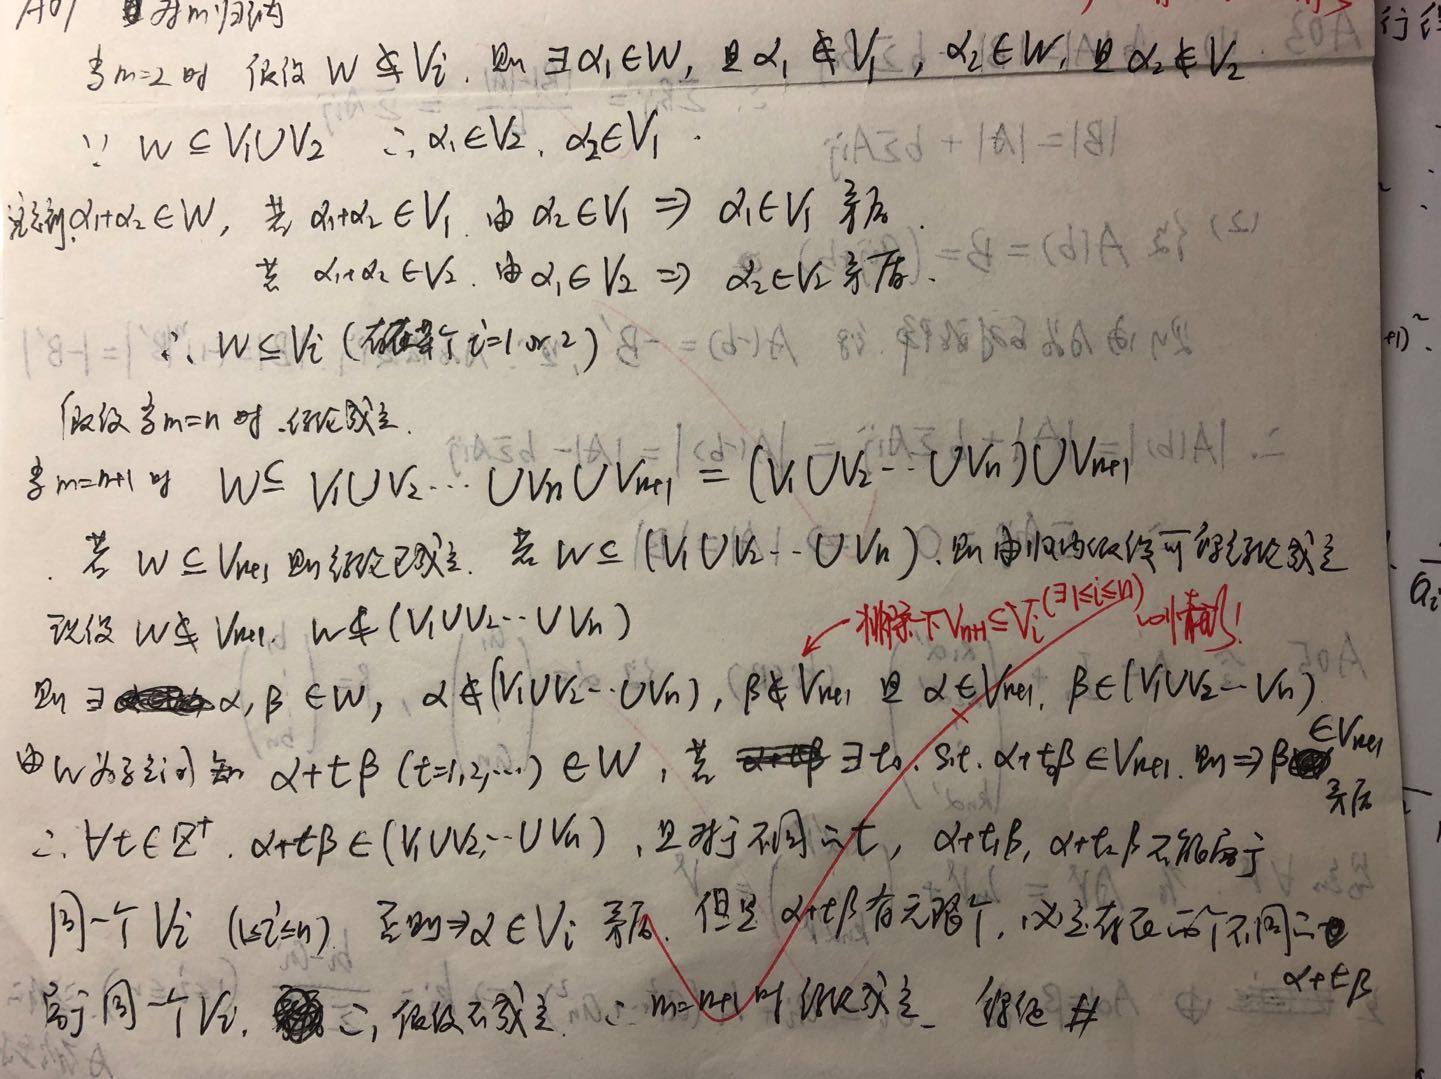 A01 对m归纳
当m=2时 假设 W ⊈ Vᵢ. 则 ∃α₁∈W, 且 α₁∉V₁, α₂∈W, 且 α₂∉V₂
∵ W⊆V₁∪V₂ ∴ α₁∈V₂, α₂∈V₁.
注意到 α₁+α₂∈W, 若 α₁+α₂∈V₁ 由 α₂∈V₁ ⇒ α₁∈V₁ 矛盾.
若 α₁+α₂∈V₂. 由 α₁∈V₂ ⇒ α₂∈V₂ 矛盾.
∴ W⊆Vᵢ (存在某个 i=1 or 2)
假设当m=n时.结论成立.
当m=n+1时 W⊆ V₁∪V₂…∪Vₙ∪Vₙ₊₁ = (V₁∪V₂…∪Vₙ)∪Vₙ₊₁
若 W⊆Vₙ₊₁ 则结论已成立. 若 W⊆(V₁∪V₂…∪Vₙ). 则由归纳假设可得结论成立
排除一下Vₙ₊₁⊆Vᵢ(∃1≤i≤n)的情形!
现设 W⊈Vₙ₊₁. W⊈(V₁∪V₂…∪Vₙ)
则∃ α,β∈W, α∉(V₁∪V₂…∪Vₙ), β∉Vₙ₊₁ 且 α∈Vₙ₊₁. β∈(V₁∪V₂…Vₙ)
由W为子空间知 α+tβ (t=1,2,…)∈W, 若 ∃t₀. s.t. α+t₀β∈Vₙ₊₁. 则⇒β∈Vₙ₊₁ 矛盾
∴ ∀t∈Z⁺. α+tβ∈(V₁∪V₂…∪Vₙ), 且对于不同的t, α+t₁β, α+t₂β不能属于
同一个Vᵢ (1≤i≤n). 否则⇒α∈Vᵢ 矛盾. 但是 α+tβ有无限个, 必定存在两个不同的 α+tβ
属于同一个Vᵢ. ∴ 假设不成立. ∴ m=n+1时结论成立. 得证 #
|B|=|A|+bΣAij